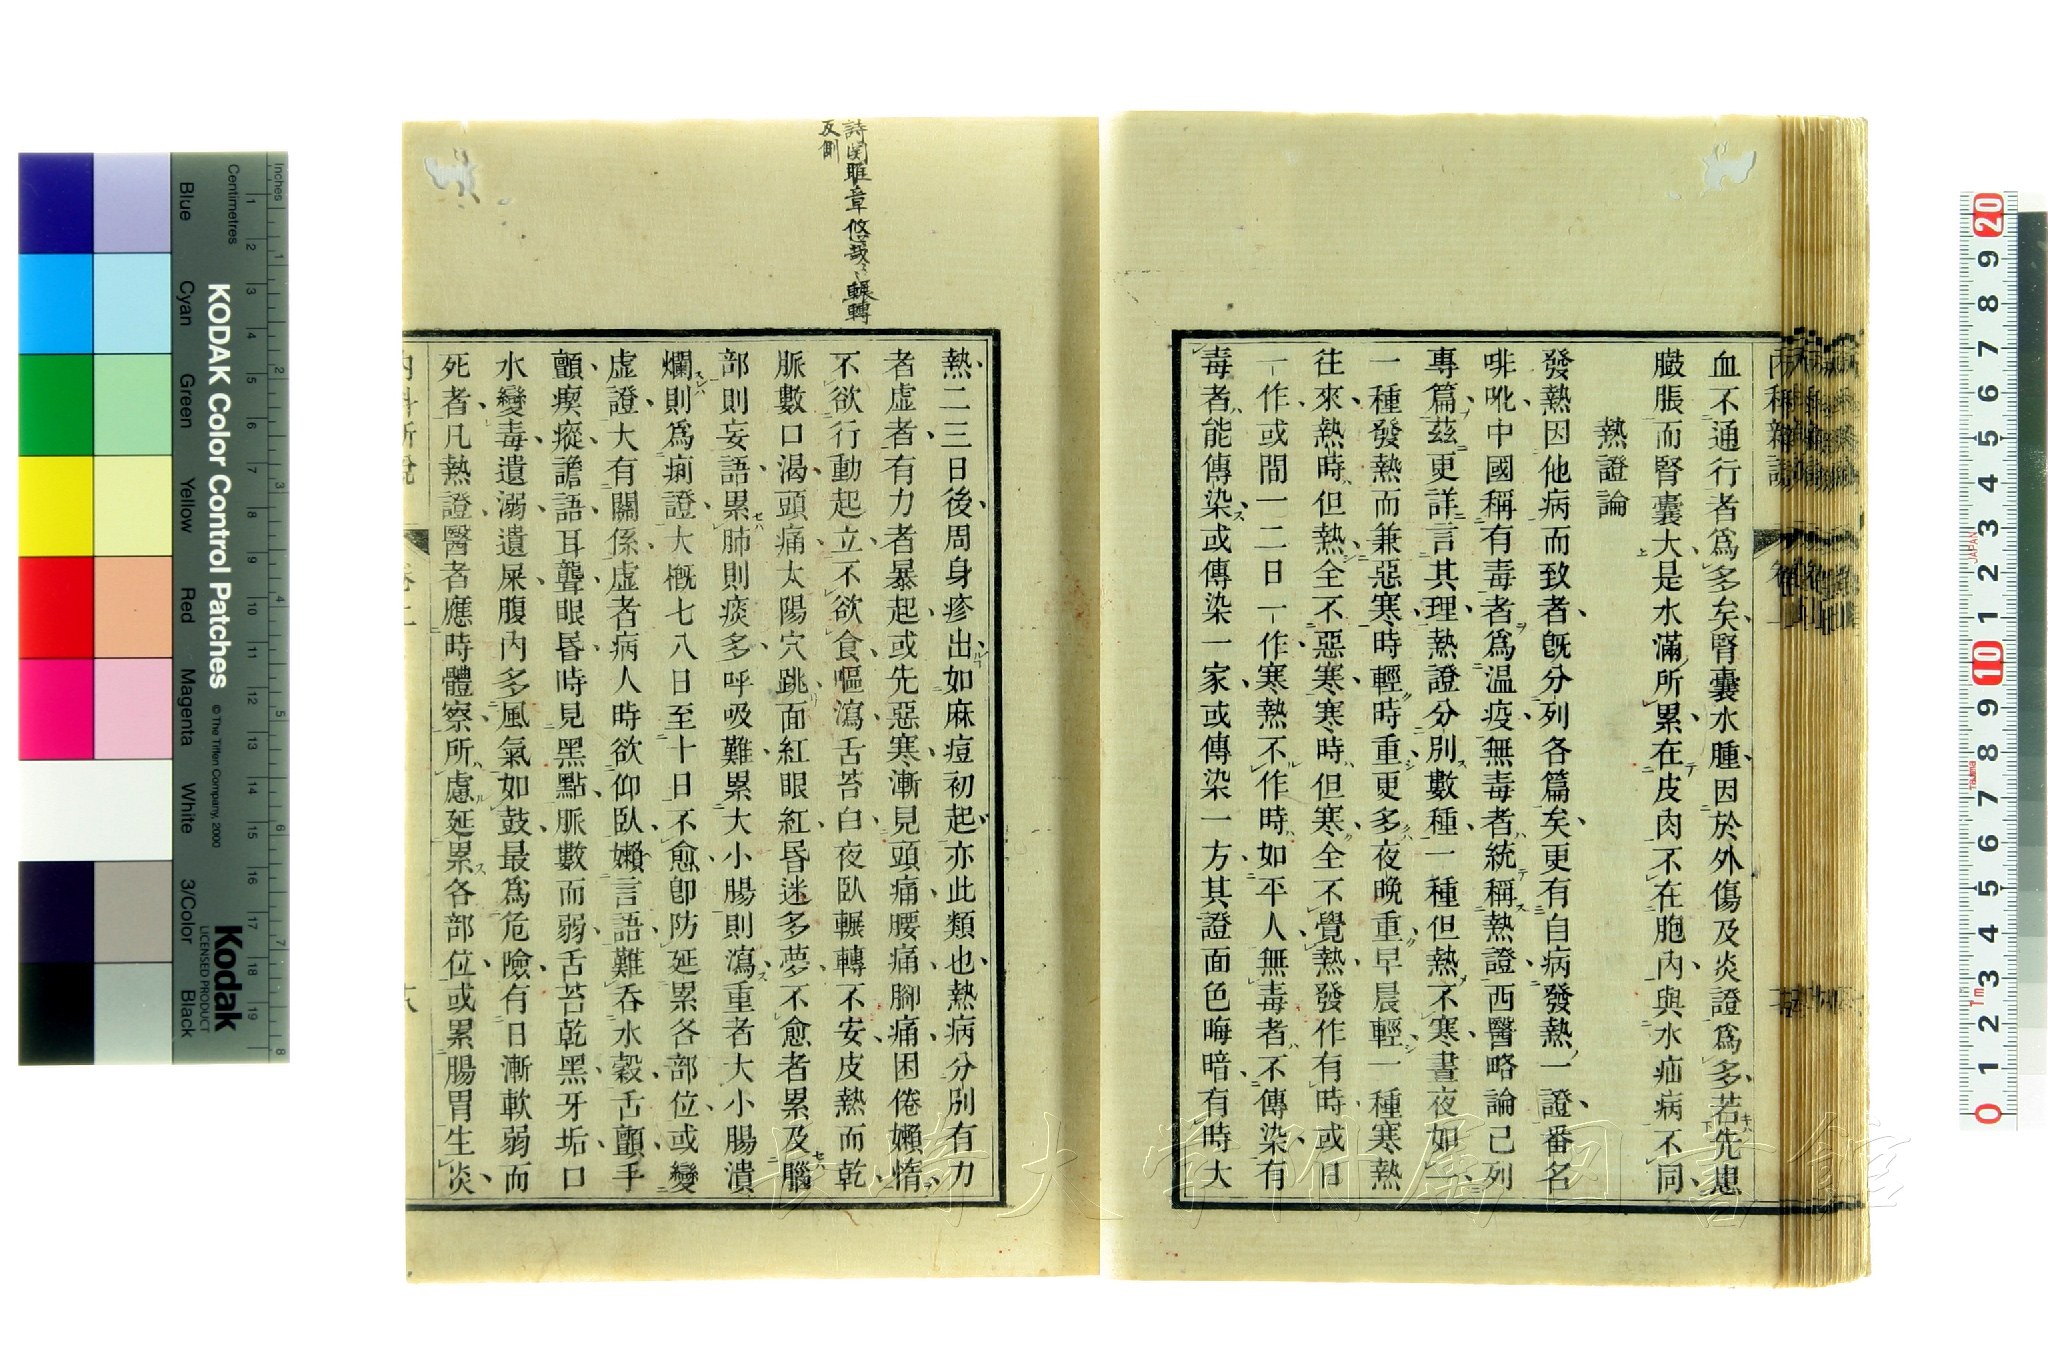 血不通行者爲多矣腎囊水腫因於外傷及炎證爲多若先患
臌脹而腎囊大是水滿所累在皮肉不在胞內與水疝病不同
熱證論
發熱因他病而致者旣分列各篇矣更有自病發熱一證番名
啡吪中國稱有毒者爲温疫無毒者統稱熱證西醫略論已列
專篇茲更詳言其理熱證分別數種一種但熱不寒晝夜如一
一種發熱而兼惡寒時輕時重更多夜晚重早晨輕一種寒熱
往來熱時但熱全不惡寒寒時但寒全不覺熱發作有時或日
一作或間一二日一作寒熱不作時如平人無毒者不傳染有
毒者能傳染或傳染一家或傳染一方其證面色晦暗有時大
詩関雎章悠哉〻輾轉
反側
熱二三日後周身疹出如麻痘初起亦此類也熱病分別有力
者虛者有力者暴起或先惡寒漸見頭痛腰痛腳痛困倦嬾惰
不欲行動起立不欲食嘔瀉舌苔白夜臥輾轉不安皮熱而乾
脈數口渴頭痛太陽穴跳面紅眼紅昏迷多夢不愈者累及腦
部則妄語累肺則痰多呼吸難累大小腸則瀉重者大小腸潰
爛則爲痢證大槪七八日至十日不愈卽防延累各部位或變
虛證大有關係虛者病人時欲仰臥嬾言語難吞水穀舌顫手
顫瘈瘲譫語耳聾眼昏時見黑點脈數而弱舌苔乾黑牙垢口
水變毒遺溺遺屎腹內多風氣如鼓最爲危險有日漸軟弱而
死者凡熱證醫者應時體察所慮延累各部位或累腸胃生炎
KODAK Color Control Patches
© The Tiffen Company, 2000
Kodak
LICENSED PRODUCT
Inches
Centimetres
Blue
Cyan
Green
Yellow
Red
Magenta
White
3/Color
Black
長崎大学附属図書館